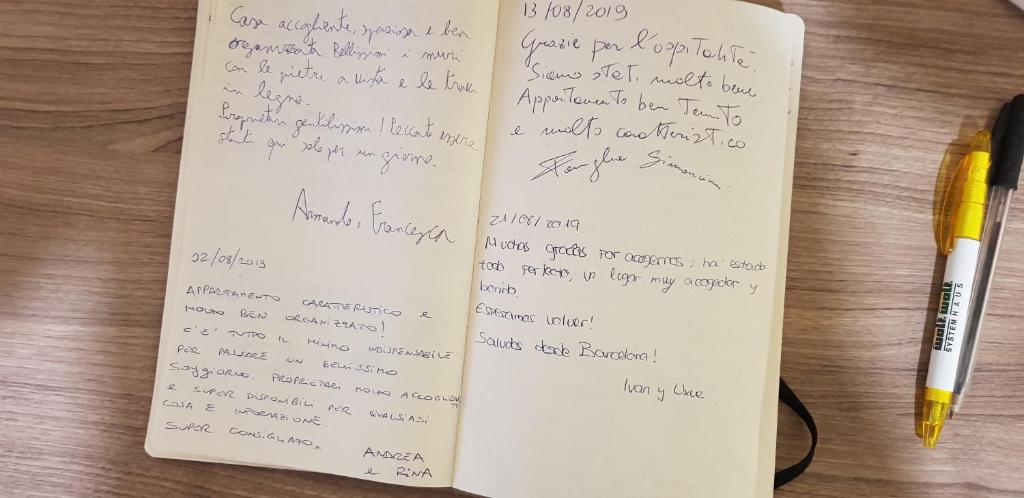 Casa accogliente, spaziosa e ben
organizzata. Bellissimi i muri
con le pietre a vista e le travi
in legno.
Proprietari gentilissimi! Peccato essere
stati qui solo per un giorno.
Armando e Francesca
02/08/2019
APPARTAMENTO CARATTERISTICO E
MOLTO BEN ORGANIZZATO!
C'E' TUTTO IL MINIMO INDISPENSABILE
PER PASSARE UN BELLISSIMO
SOGGIORNO. PROPRIETARI MOLTO ACCOGLIENTI
E SUPER DISPONIBILI PER QUALSIASI
COSA E INFORMAZIONE.
SUPER CONSIGLIATO.
ANDREA
e RINA
13/08/2019
Grazie per l'ospitalità.
Siamo stati molto bene
Appartamento ben Tenuto
e molto caratteristico
Famiglia
21/08/2019
Muchas gracias por acogernos; ha estado
todo perfecto, un lugar muy acogedor y
bonito.
Esperamos volver!
Saludos desde Barcelona!
Ivan y
wolf wolf
SYSTEMHAUS